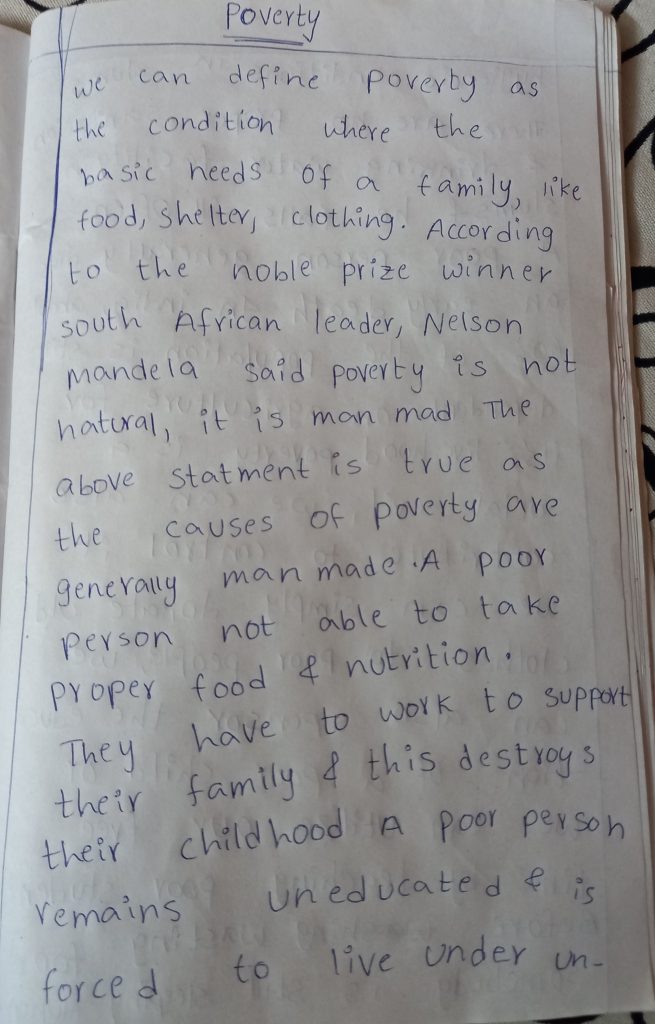 Poverty
we can define poverby as
the condition where the
basic needs of a family, like
food, shelter, clothing. According
to the noble prize winner
south African leader, Nelson
mandela said poverty is not
natural, it is man mad The
above statment is true as
the causes of poverty are
generally man made. A poor
person not able to take
proper food & nutrition.
They have to work to support
their family & this destroys
their childhood A poor person
remains uneducated & is
forced to live under un-